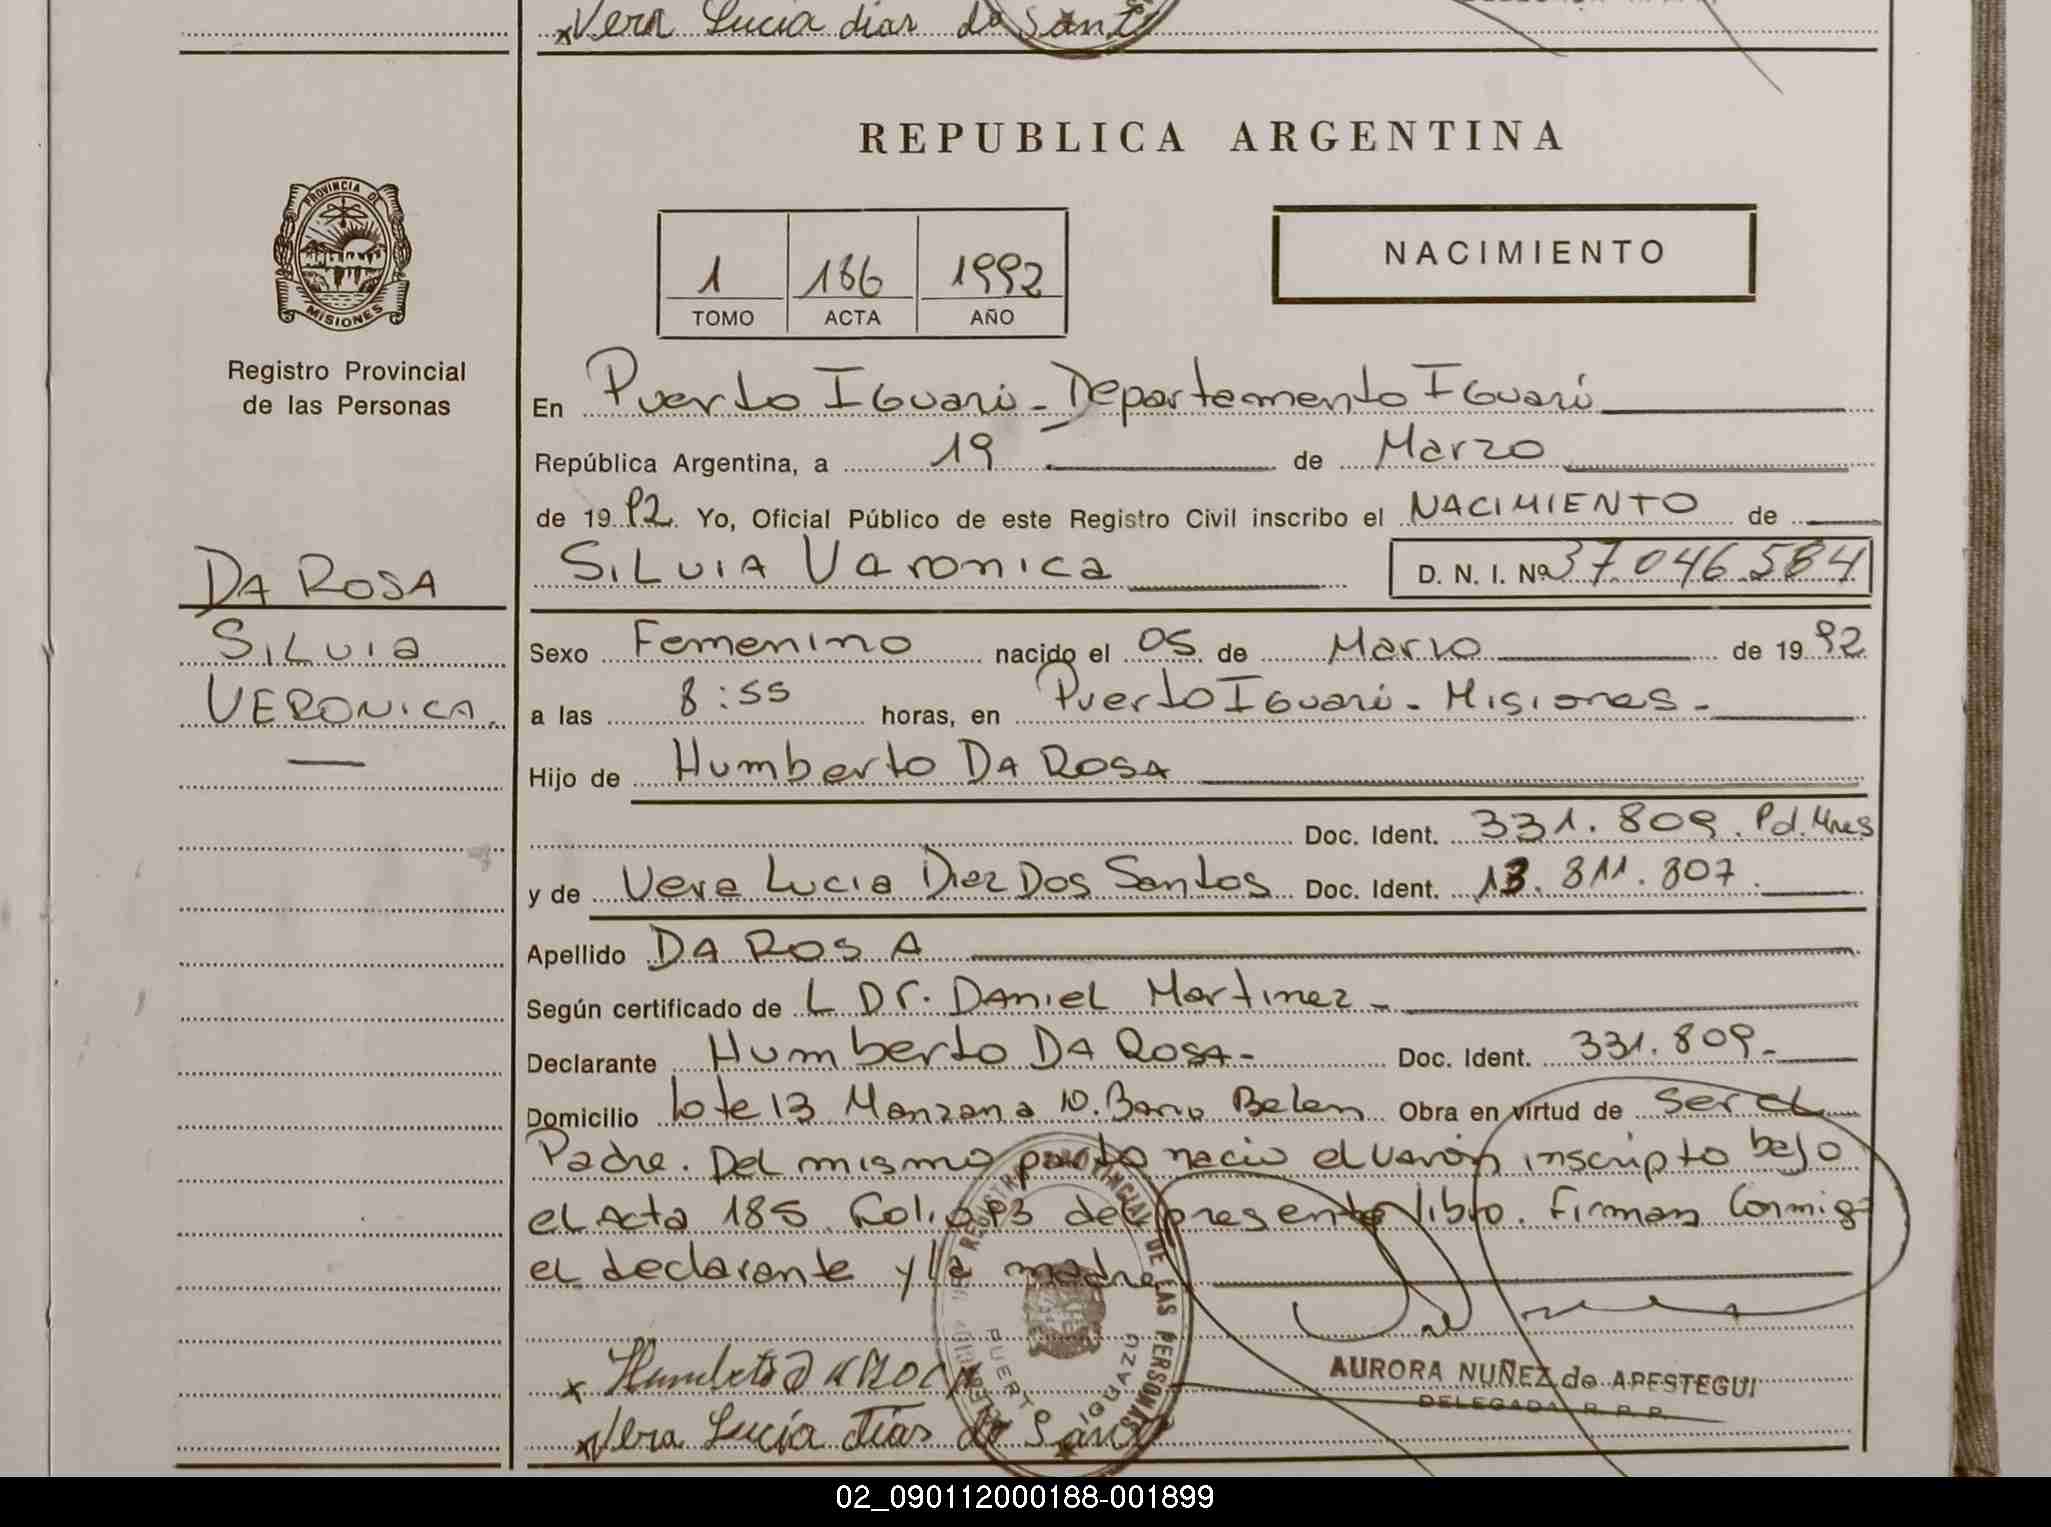 xVera Lucia dias do Sant
REPUBLICA ARGENTINA
PROVINCIA DE
MISIONES
Registro Provincial
de las Personas
NACIMIENTO
1 186 1992
TOMO ACTA AÑO
En Puerto IGuazú - Departamento IGuazú
República Argentina, a 19 de Marzo
de 1992. Yo, Oficial Público de este Registro Civil inscribo el NACIMIENTO de
SiLvia Varonica D. N. I. Nº 37.046.584
DA ROSA
SiLvia
VERONICA.
Sexo Femenino nacido el 05 de Marzo de 1992
a las 8:55 horas, en Puerto IGuazú - Misiones -
Hijo de Humberto DA ROSA
Doc. Ident. 331.809. Pd. Mnes
y de Vera Lucia Diaz Dos Santos Doc. Ident. 13.811.807.
Apellido DA ROSA
Según certificado de L Dr. Daniel Martinez -
Declarante Humberto DA ROSA - Doc. Ident. 331.809 -
Domicilio lote 13 Manzana 10. Barrio Belen Obra en virtud de ser el
Padre. Del mismo parto nacio el varón inscripto bajo
el Acta 185 Folio 93 del presente libro. Firman Conmigo
el declarante y la madre
REGISTRO PROVINCIAL DE LAS PERSONAS
PUERTO IGUAZU
x Humberto DA ROCA
AURORA NUÑEZ de APESTEGUI
DELEGADA R. P. P.
xVera Lucia Dias do Santo
02_090112000188-001899